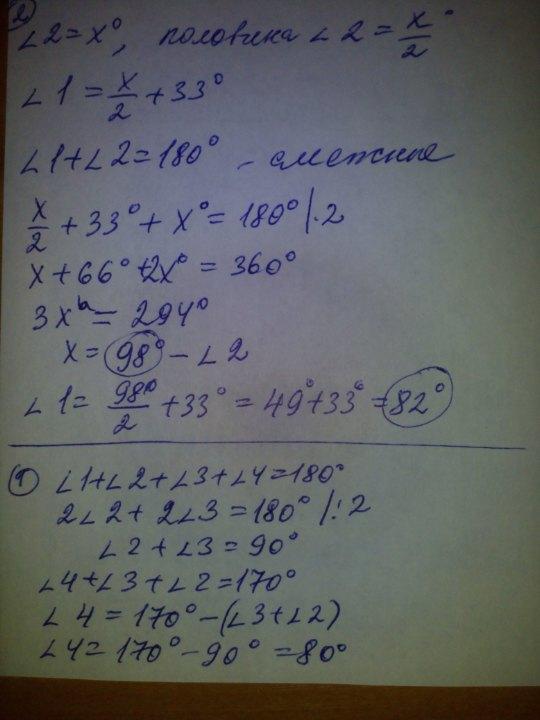 ②
∠2=x°, половина ∠2=x/2°
∠1=x/2+33°
∠1+∠2=180° - смежные
x/2+33°+x°=180° |·2
x+66°+2x°=360°
3x°=294°
x=98° - ∠2
∠1=98°/2+33°=49°+33°=82°
① ∠1+∠2+∠3+∠4=180°
2∠2+2∠3=180° |:2
∠2+∠3=90°
∠4+∠3+∠2=170°
∠4=170°-(∠3+∠2)
∠4=170°-90°=80°